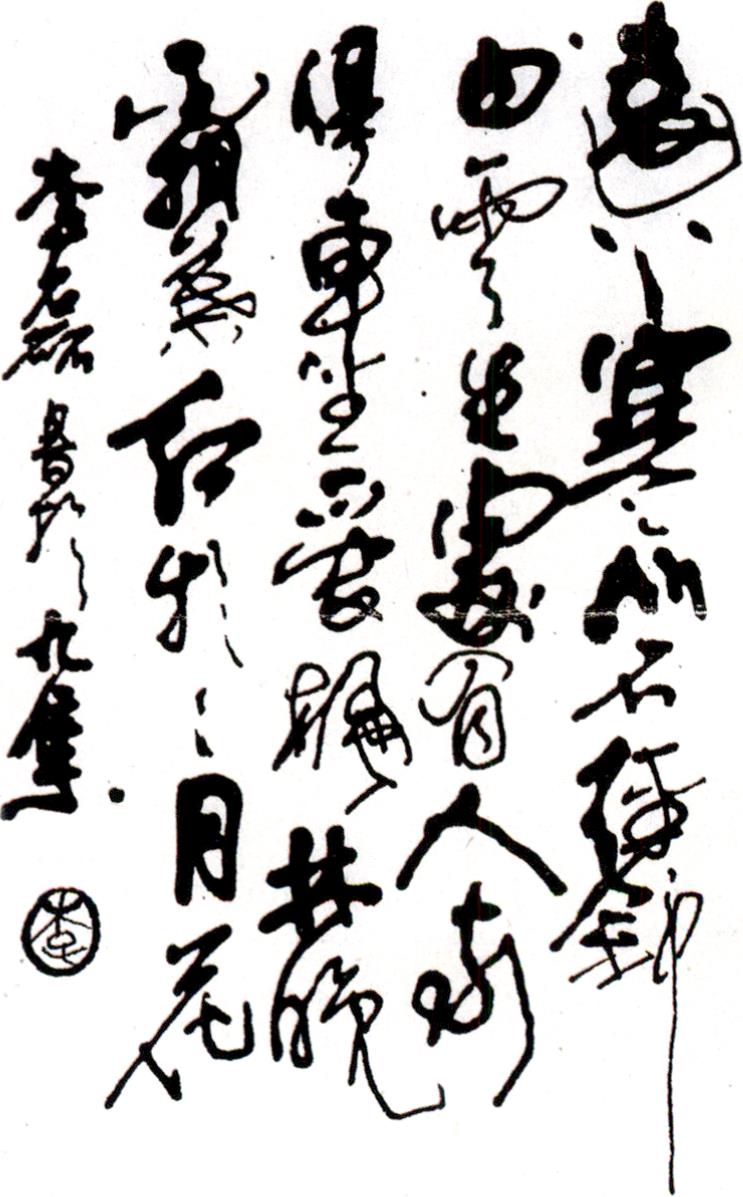 遠上寒山石徑斜
白雲生處有人家
停車坐愛楓林晚
霜葉紅於二月花
李 書於九
李